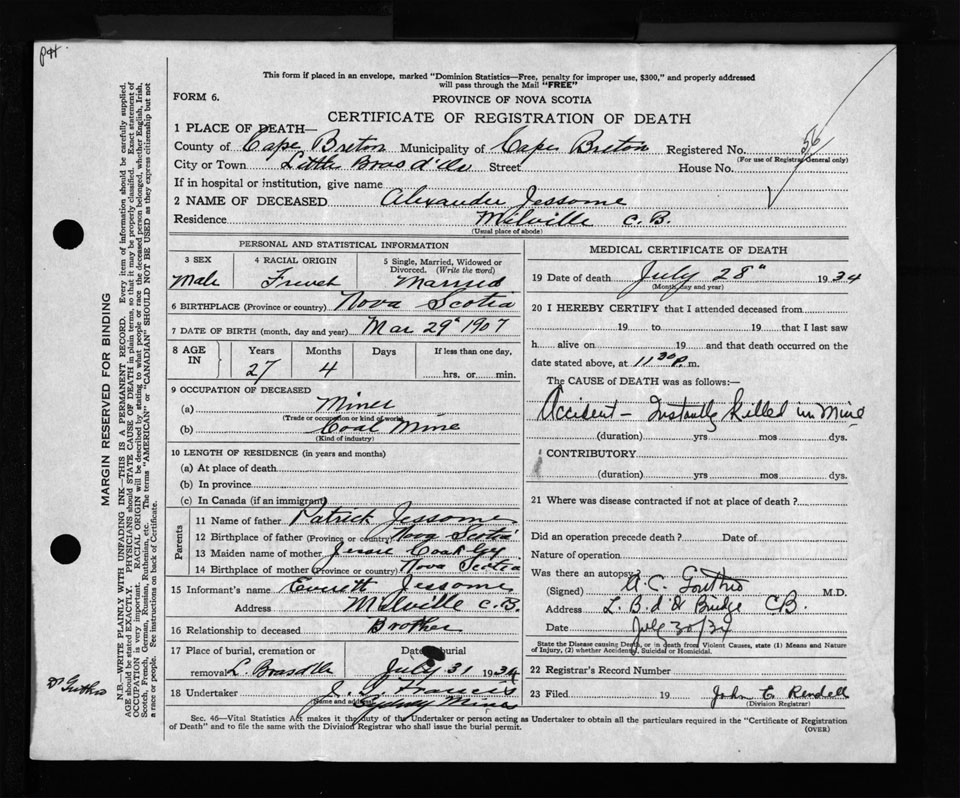 P4
This form if placed in an envelope, marked "Dominion Statistics—Free, penalty for improper use, $300," and properly addressed
will pass through the Mail "FREE"
FORM 6.
PROVINCE OF NOVA SCOTIA
CERTIFICATE OF REGISTRATION OF DEATH
1 PLACE OF DEATH—
County of Cape Breton Municipality of Cape Breton Registered No. 56
(For use of Registrar General only)
City or Town Little Bras d'Or Street House No.
If in hospital or institution, give name
2 NAME OF DECEASED Alexander Jessome
Residence Milville C.B.
(Usual place of abode)
PERSONAL AND STATISTICAL INFORMATION
3 SEX 4 RACIAL ORIGIN 5 Single, Married, Widowed or Divorced. (Write the word)
Male French Married
6 BIRTHPLACE (Province or country) Nova Scotia
7 DATE OF BIRTH (month, day and year) Mar 29" 1907
8 AGE IN Years Months Days If less than one day,
27 4 hrs. or min.
9 OCCUPATION OF DECEASED
(a) Miner
(Trade or occupation or kind of work)
(b) Coal Mine
(Kind of industry)
10 LENGTH OF RESIDENCE (in years and months)
(a) At place of death
(b) In province
(c) In Canada (if an immigrant)
Parents
11 Name of father Patrick Jessome
12 Birthplace of father (Province or country) Nova Scotia
13 Maiden name of mother Jessie
14 Birthplace of mother (Province or country) Nova Scotia
15 Informant's name Everett Jessome
Address Milville C.B.
16 Relationship to deceased Brother
17 Place of burial, cremation or Date of burial
removal L. Brasd'Or July 31 1934
18 Undertaker J. Francis
(Name and address) Sydney Mines
MEDICAL CERTIFICATE OF DEATH
19 Date of death July 28" 1934
(Month, day and year)
20 I HEREBY CERTIFY that I attended deceased from
19 to 19 that I last saw
h alive on 19 and that death occurred on the
date stated above, at 11 30 P. m.
The CAUSE OF DEATH was as follows:—
Accident – Instantly killed in Mine
(duration) yrs mos dys.
CONTRIBUTORY
(duration) yrs mos dys.
21 Where was disease contracted if not at place of death?
Did an operation precede death? Date of
Nature of operation
Was there an autopsy?
(Signed) A.C. Gouthro M.D.
Address L. B. d'Or Bridge C.B.
Date July 30/34
State the Disease causing Death, or in death from Violent Causes, state (1) Means and Nature
of Injury, (2) whether Accidental, Suicidal or Homicidal.
22 Registrar's Record Number
23 Filed 19 John E. Rendell
(Division Registrar)
Sec. 46—Vital Statistics Act makes it the duty of the Undertaker or person acting as Undertaker to obtain all the particulars required in the "Certificate of Registration
of Death" and to file the same with the Division Registrar who shall issue the burial permit.
(OVER)
MARGIN RESERVED FOR BINDING
N.B.—WRITE PLAINLY WITH UNFADING INK—THIS IS A PERMANENT RECORD. Every item of information should be carefully supplied.
AGE should be stated EXACTLY. PHYSICIANS should STATE CAUSE OF DEATH in plain terms, so that it may be properly classified. Exact statement of
OCCUPATION is very important. RACIAL ORIGIN will be described by stating to what people or race the deceased person belonged, whether English, Irish,
Scotch, French, German, Russian, Ruthenian, etc. The terms "AMERICAN" or "CANADIAN" SHOULD NOT BE USED as they express citizenship but not
a race or people. See instructions on back of Certificate.